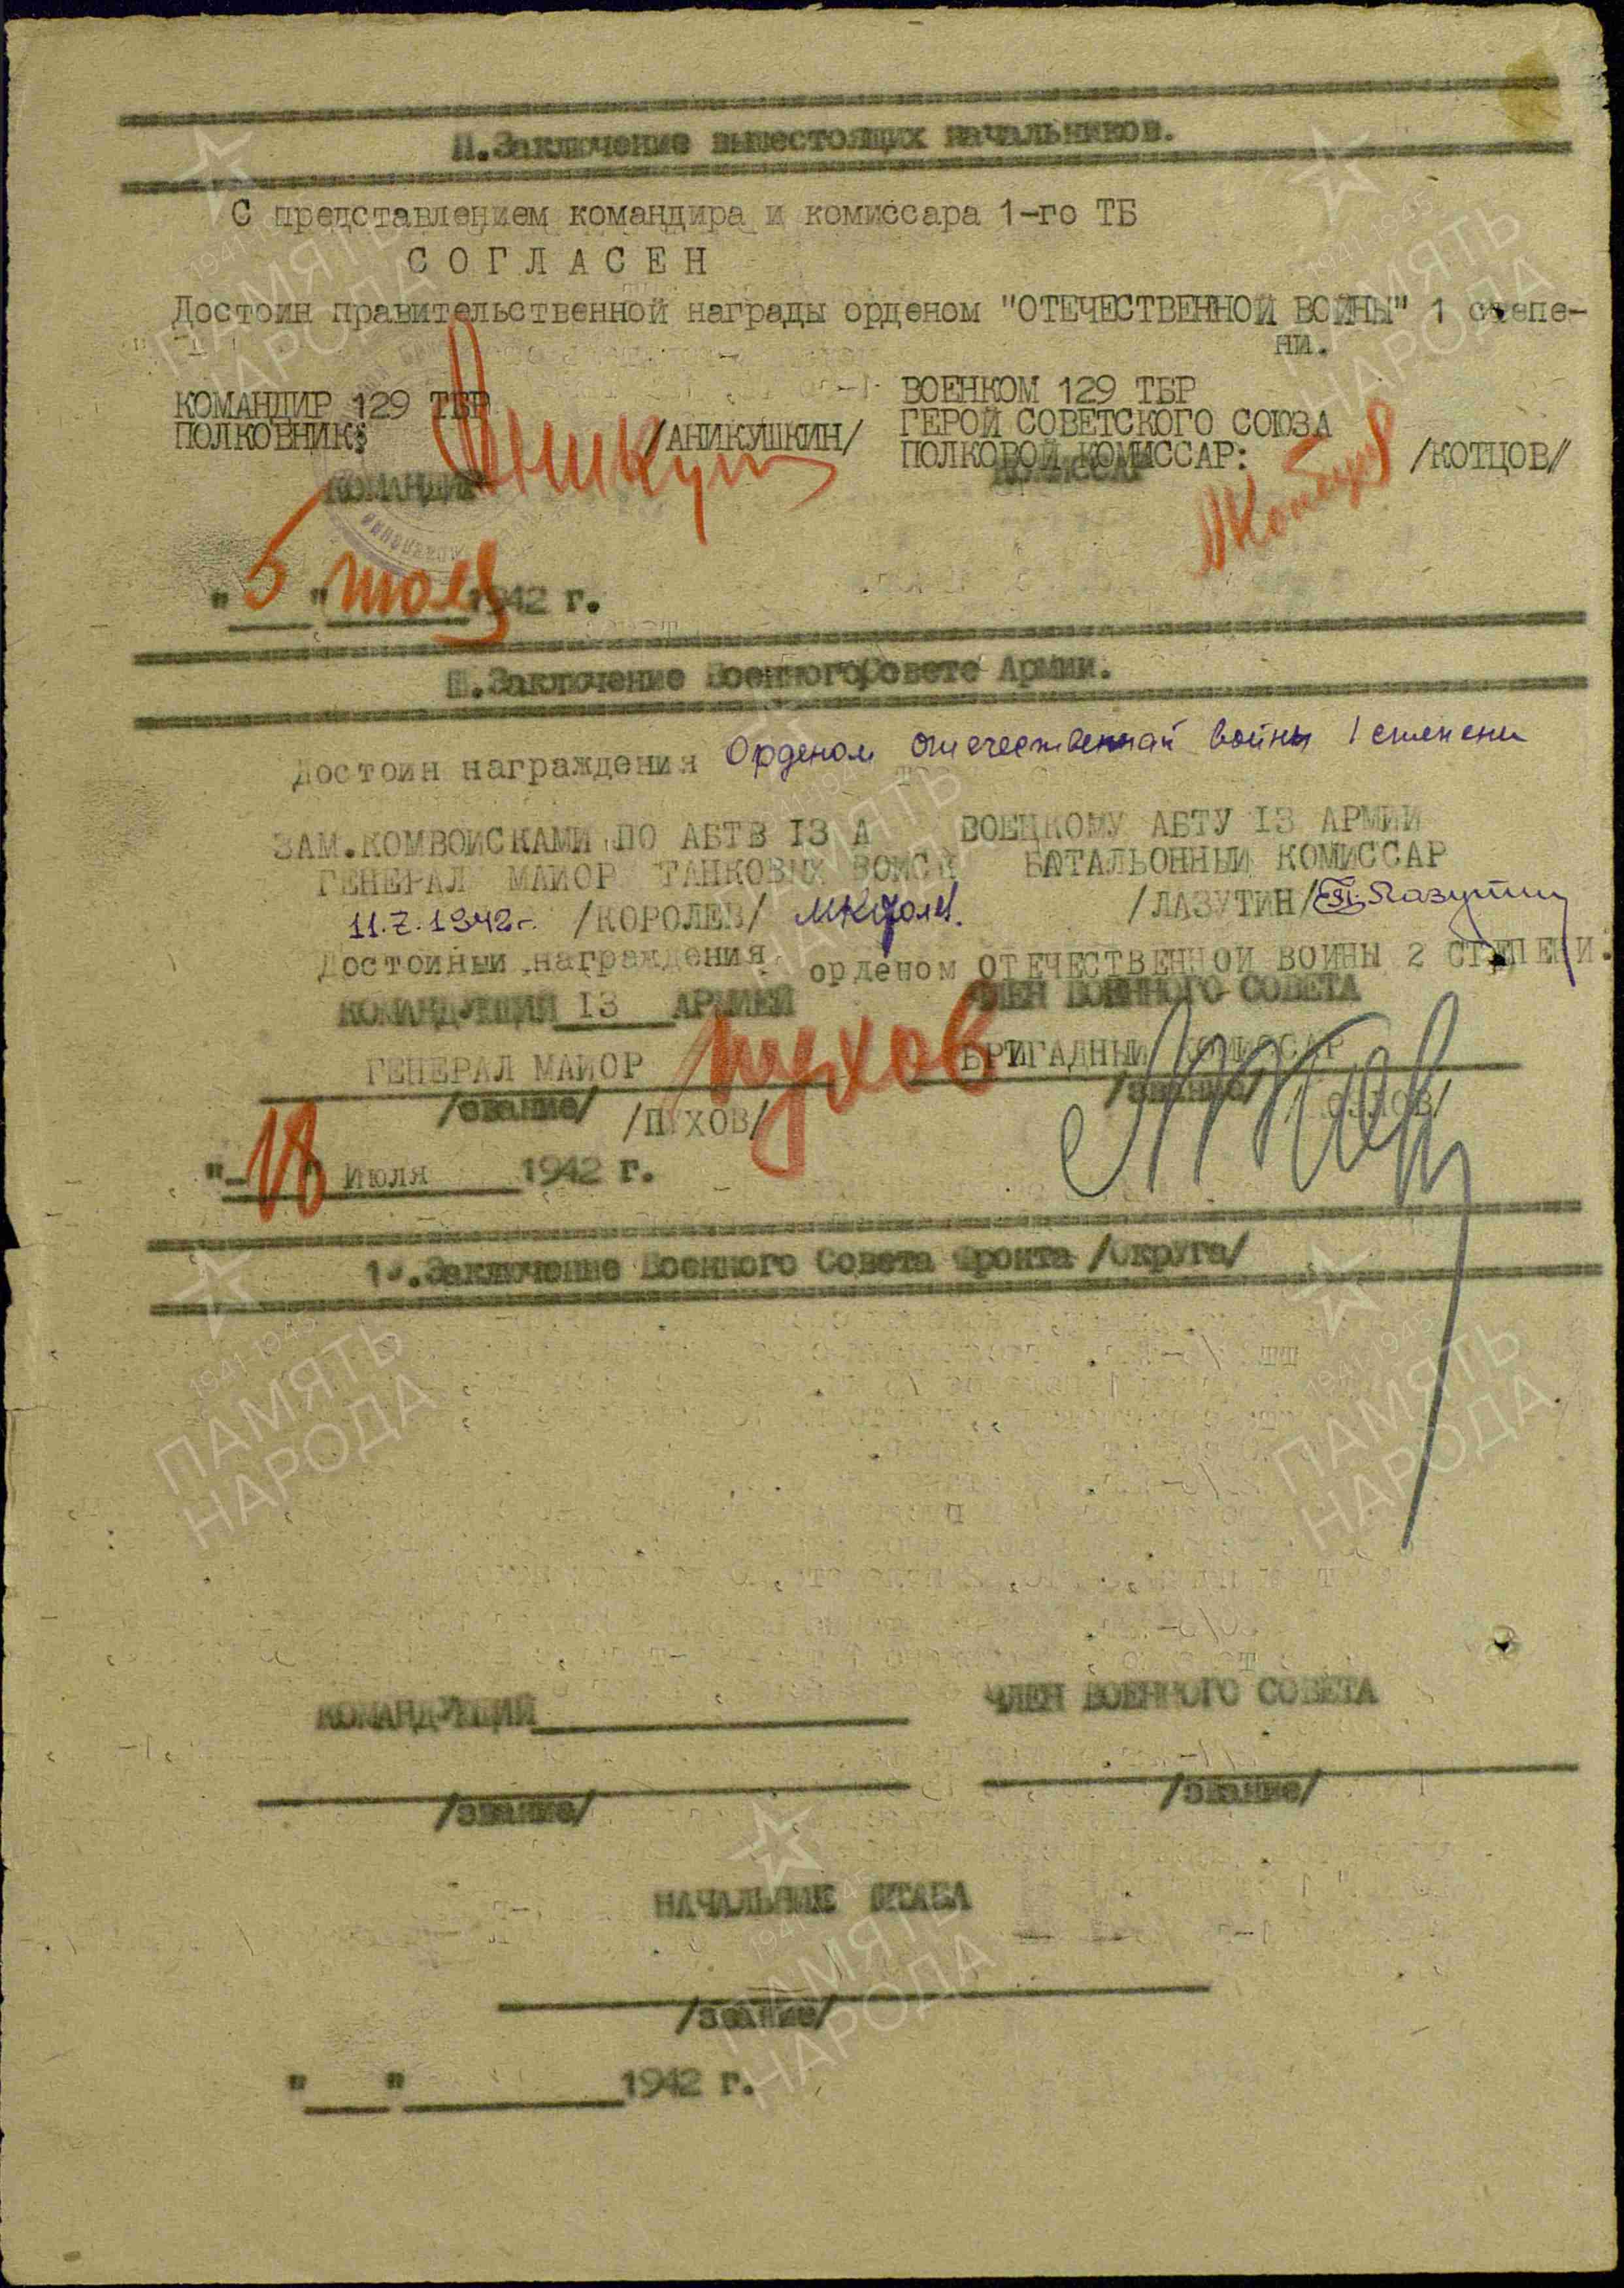 П.Заключение вышестоящих начальников.
С представлением командира и комиссара 1-го ТБ
СОГЛАСЕН
Достоин правительственной награды орденом "ОТЕЧЕСТВЕННОЙ ВОЙНЫ" 1 степе-
ни.
КОМАНДИР 129 ТБР
ПОЛКОВНИК: /АНИКУШКИН/
Аникуш
КОМАНДИР
ВОЕНКОМ 129 ТБР
ГЕРОЙ СОВЕТСКОГО СОЮЗА
ПОЛКОВОЙ КОМИССАР: /КОТЦОВ/
КОМИССАР
"5" июля 1942 г.
Ш.Заключение Военного Совете Армии.
Достоин награждения Орденом отечественной войны 1 степени
ЗАМ.КОМВОЙСКАМИ ПО АБТВ 13 А
ГЕНЕРАЛ МАЙОР ТАНКОВЫХ ВОЙСК
11.7.1942г. /КОРОЛЕВ/
ВОЕНКОМУ АБТУ 13 АРМИИ
БАТАЛЬОННЫЙ КОМИССАР
/ЛАЗУТИН/ Лазутин
Достойный награждения орденом ОТЕЧЕСТВЕННОЙ ВОЙНЫ 2 СТЕПЕНИ.
КОМАНДУЮЩИЙ 13 АРМИЕЙ
ГЕНЕРАЛ МАЙОР Пухов
/звание/ /ПУХОВ/
ЧЛЕН ВОЕННОГО СОВЕТА
БРИГАДНЫЙ КОМИССАР
/звание/
"18" Июля 1942 г.
1У.Заключение Военного Совета Фронта /Округа/
КОМАНДУЮЩИЙ
/звание/
ЧЛЕН ВОЕННОГО СОВЕТА
/звание/
НАЧАЛЬНИК ШТАБА
/звание/
"___"________1942 г.
1941-1945
ПАМЯТЬ
НАРОДА